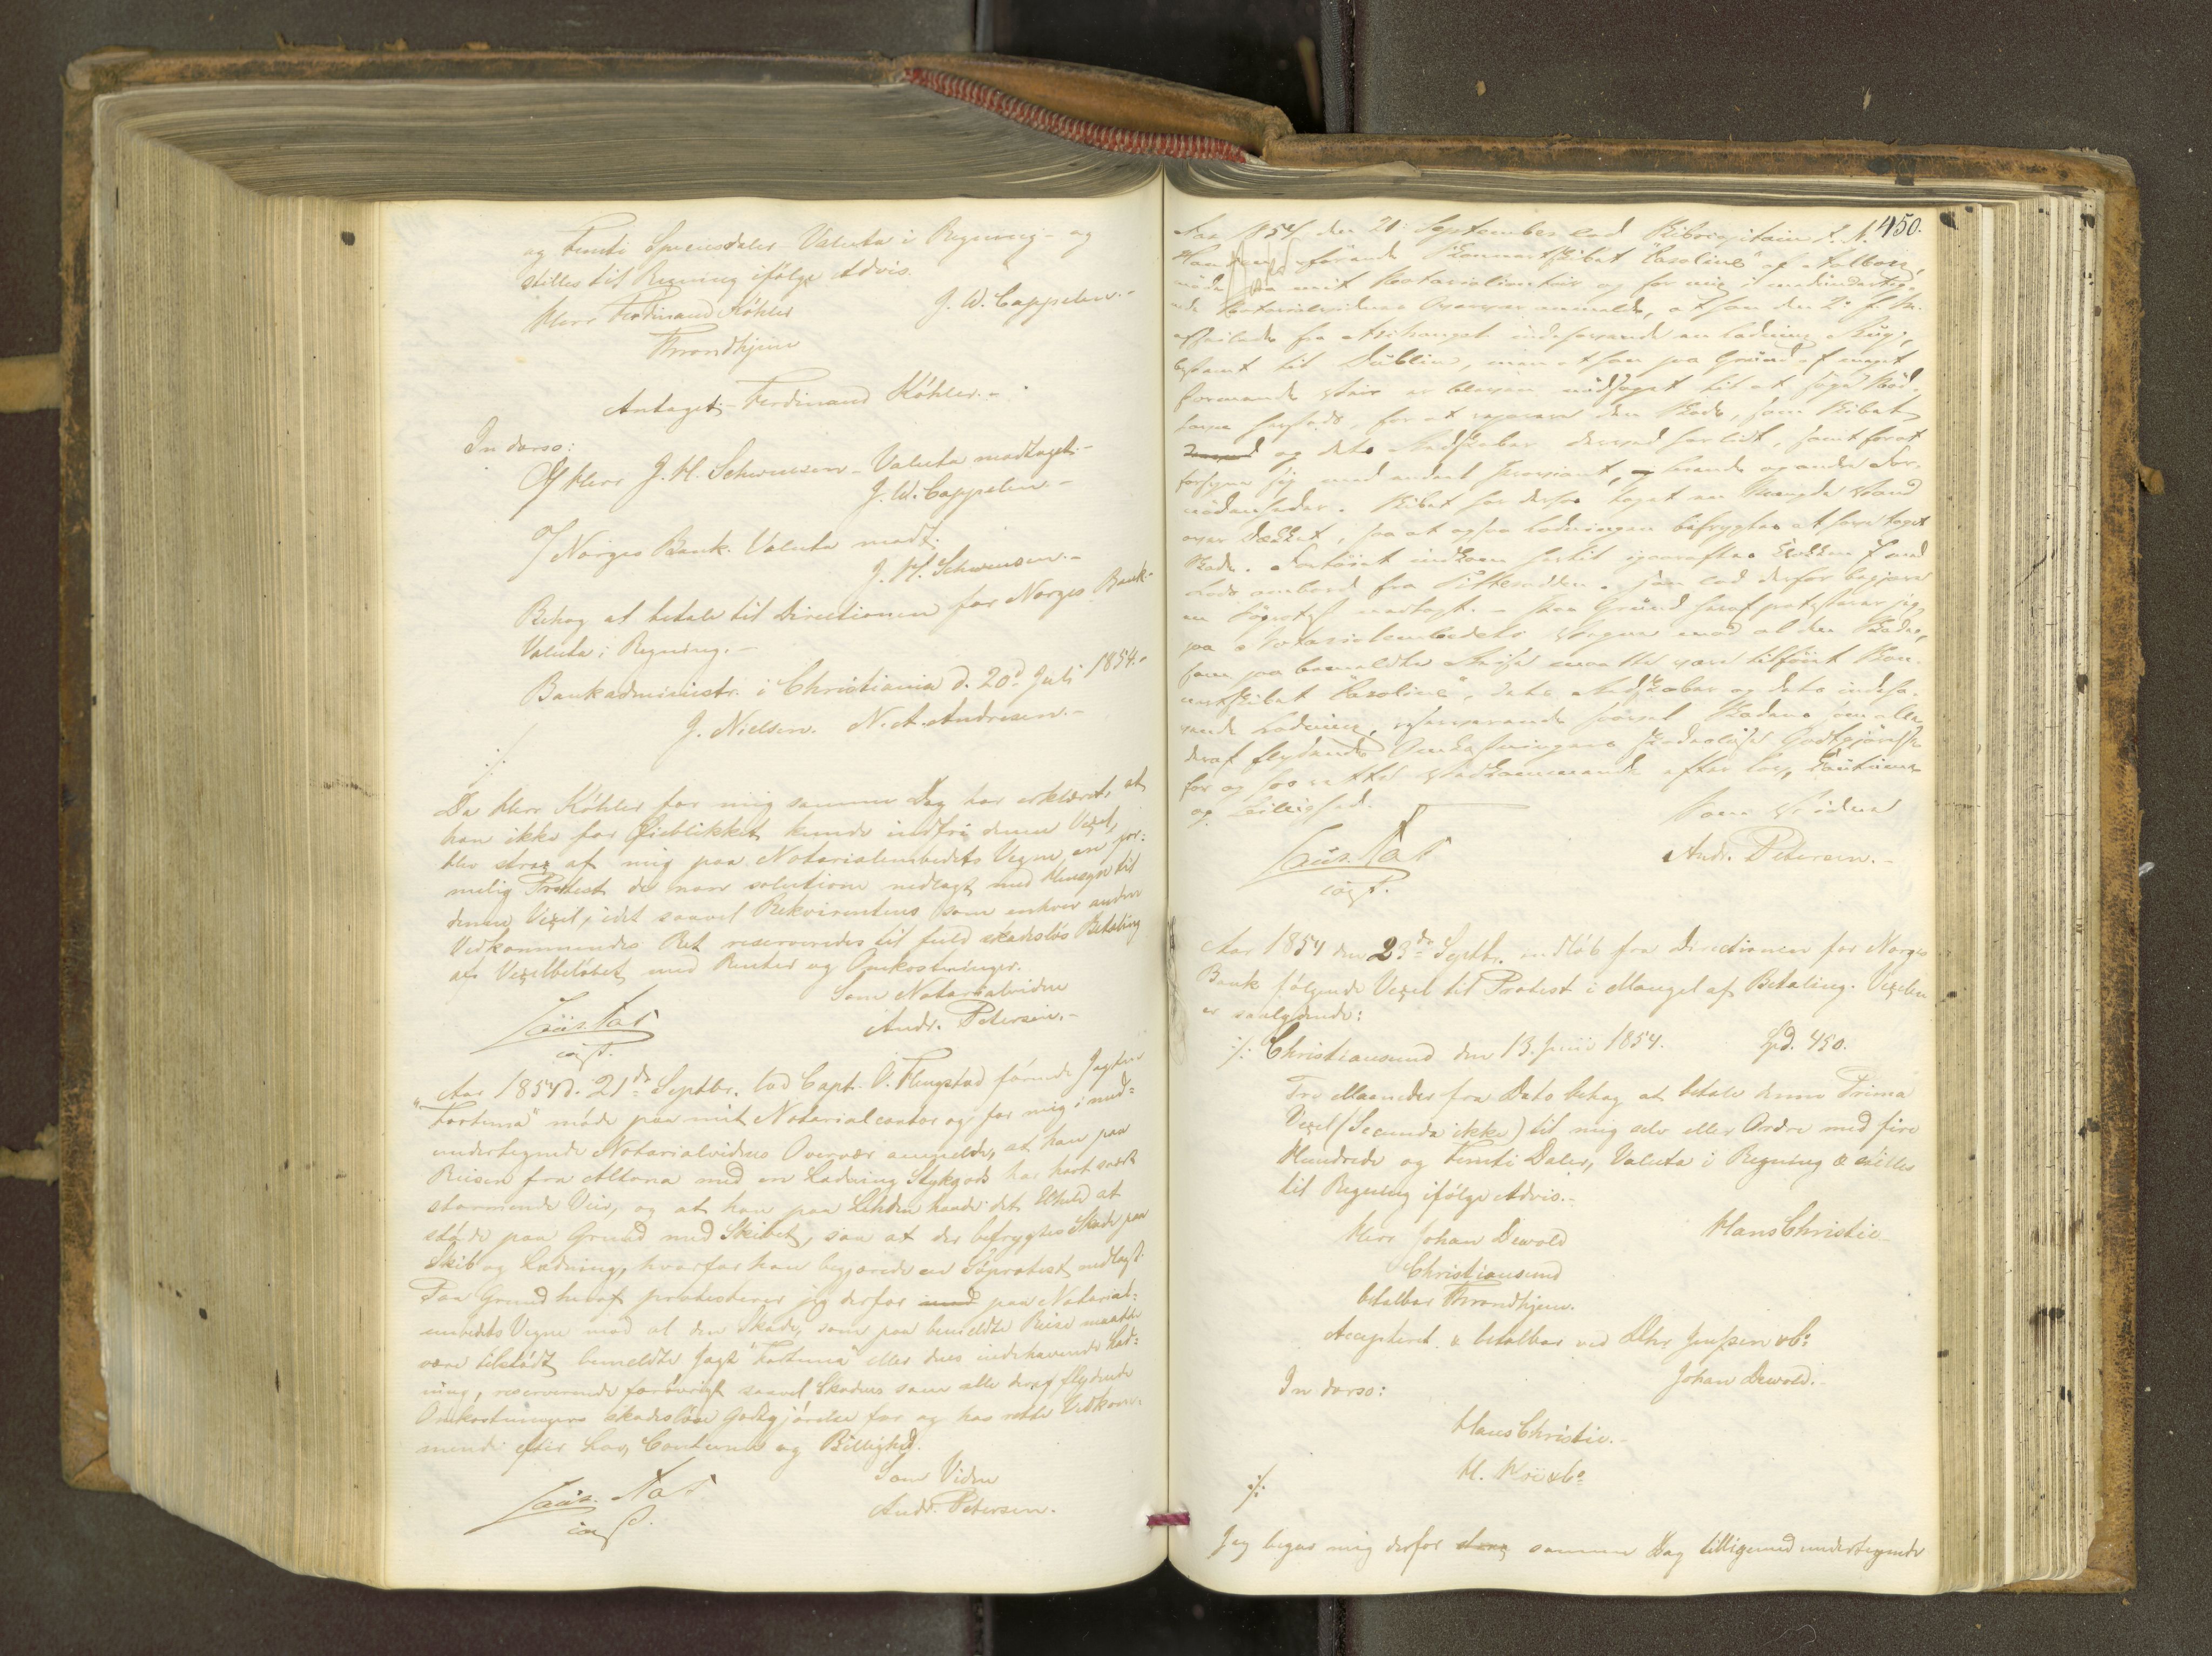 og Femti Speciesdaler – Valuta i Regning – og
stilles til Regning ifølge Advis.
J. W. Cappelen. –
Herr Ferdinand Köhler
Throndhjem
Antaget – Ferdinand Köhler. –
In dorso:
Til Herr J. H. Schwensen – Valuta modtaget. –
J. W. Cappelen –
T/ Norges Bank. Valuta modt.
J. H. Schwensen. –
Behag at betale til Directionen for Norges Bank. –
Valuta i Regning. –
Bankadministr. i Christiania d. 20d Juli 1854. –
J. Nielsen. N. A. Andresen. –
./.
Da Herr Köhler for mig samme Dag har erklæret, at
han ikke for Øieblikket kunde indfri denne Vexel,
blev strax af mig paa Notarialembedets Vegne en for:
melig Protest de non solutione nedlagt med Hensyn til
denne Vexel, idet saavel Rekvirentens som enhver anden
Vedkommendes Ret reserveredes til fuld skadesløs Betaling
af Vexelbeløbet med Renter og Omkostninger.
Som Notarialvidne
Andr. Petersen. –
Aar 1854 d. 21de Septbr. lod Capt. O. Flengstad førende Jagten
"Fortuna" møde paa mit Notarialcontor og for mig i med-
undertegnede Notarialvidnes Overvær anmelde, at han paa
Reisen fra Altona med en Ladning Stykgods har havt svært
stormende Veir, og at han paa havde det Uheld at
støde paa Grund med Skibet, saa at der befrygtes Skade paa
Skib og Ladning, hvorfor han begjærede en Søprotest nedlagt.
Paa Grund heraf protesterer jeg derfor med paa Notarial-
embedets Vegne mod al den Skade, som paa bemeldte Reise maatte
være tilstødt bemeldte Jagt "Fortuna" eller dens indehavende Lad-
ning, reserverende forøvrigt saavel Skadens som alle deraf flydende
Omkostningers skadesløse Godtgjørelse for og hos rette Vedkom-
mende efter Lov, Coutume og Billighed.
Som Vidne
Andr. Petersen.
450.
Aar 1854 den 21. September lod Skibscapitain
førende Skonnertskibet "Caroline" af
møde paa mit Notarialcontoir og for mig i medundertegn-
ede Notarialvidnes Overvær anmelde, at han den 2. f. M.
afseilede fra Archangel indehavende en Ladning Rug,
bestemt til Dublin, men at han paa Grund af meget
stormende Veir er bleven nødsaget til at søge Nød-
havn hersteds, for at reparere den Skade, som Skibet
og dets Redskaber derved har lidt, samt for at
forsyne sig med andet Proviant, Brænde og andre For-
nødenheder. Skibet har derhos taget en Mængde Vand
over Dækket, saa at ogsaa Ladningen befrygtes at have taget
Skade. Fartøiet indkom hertil igaaraftes Klokken 7 med
Lods ombord fra . Han lod derfor begjære
en Søprotest nedlagt. – Paa Grund heraf protesterer jeg
paa Notarialembedets Vegne mod al den Skade,
som paa bemeldte Reise maatte være tilføiet Skon-
nertskibet "Caroline", dets Redskaber og dets indeha-
vende Ladning, reserverende saavel Skadens som alle
deraf flydende Omkostningers skadesløse Godtgjørelse
for og hos rette Vedkommende efter Lov, Coutume
og Billighed.
Som Vidne
Andr. Petersen. –
Aar 1854 den 23de Septbr. indløb fra Directionen for Norges
Bank følgende Vexel til Protest i Mangel af Betaling. Vexelen
er saalydende:
./. Christiansund den 13. Juni 1854. Spd. 450.
Tre Maaneder fra Dato behag at betale denne Prima
Vexel (Secunda ikke) til mig selv eller Ordre med fire
Hundrede og Femti Daler, Valuta i Regning & stilles
til Regning ifølge Advis. –
Hans Christie
Herr Johan Dewold
Christiansund
betalbar Throndhjem.
Accepteret & betalbar ved DHr. Jenssen & Co
Johan Dewold. –
In dorso:
Hans Christie. –
./.
Jeg begav mig derfor strax samme Dag tilligemed undertegnede